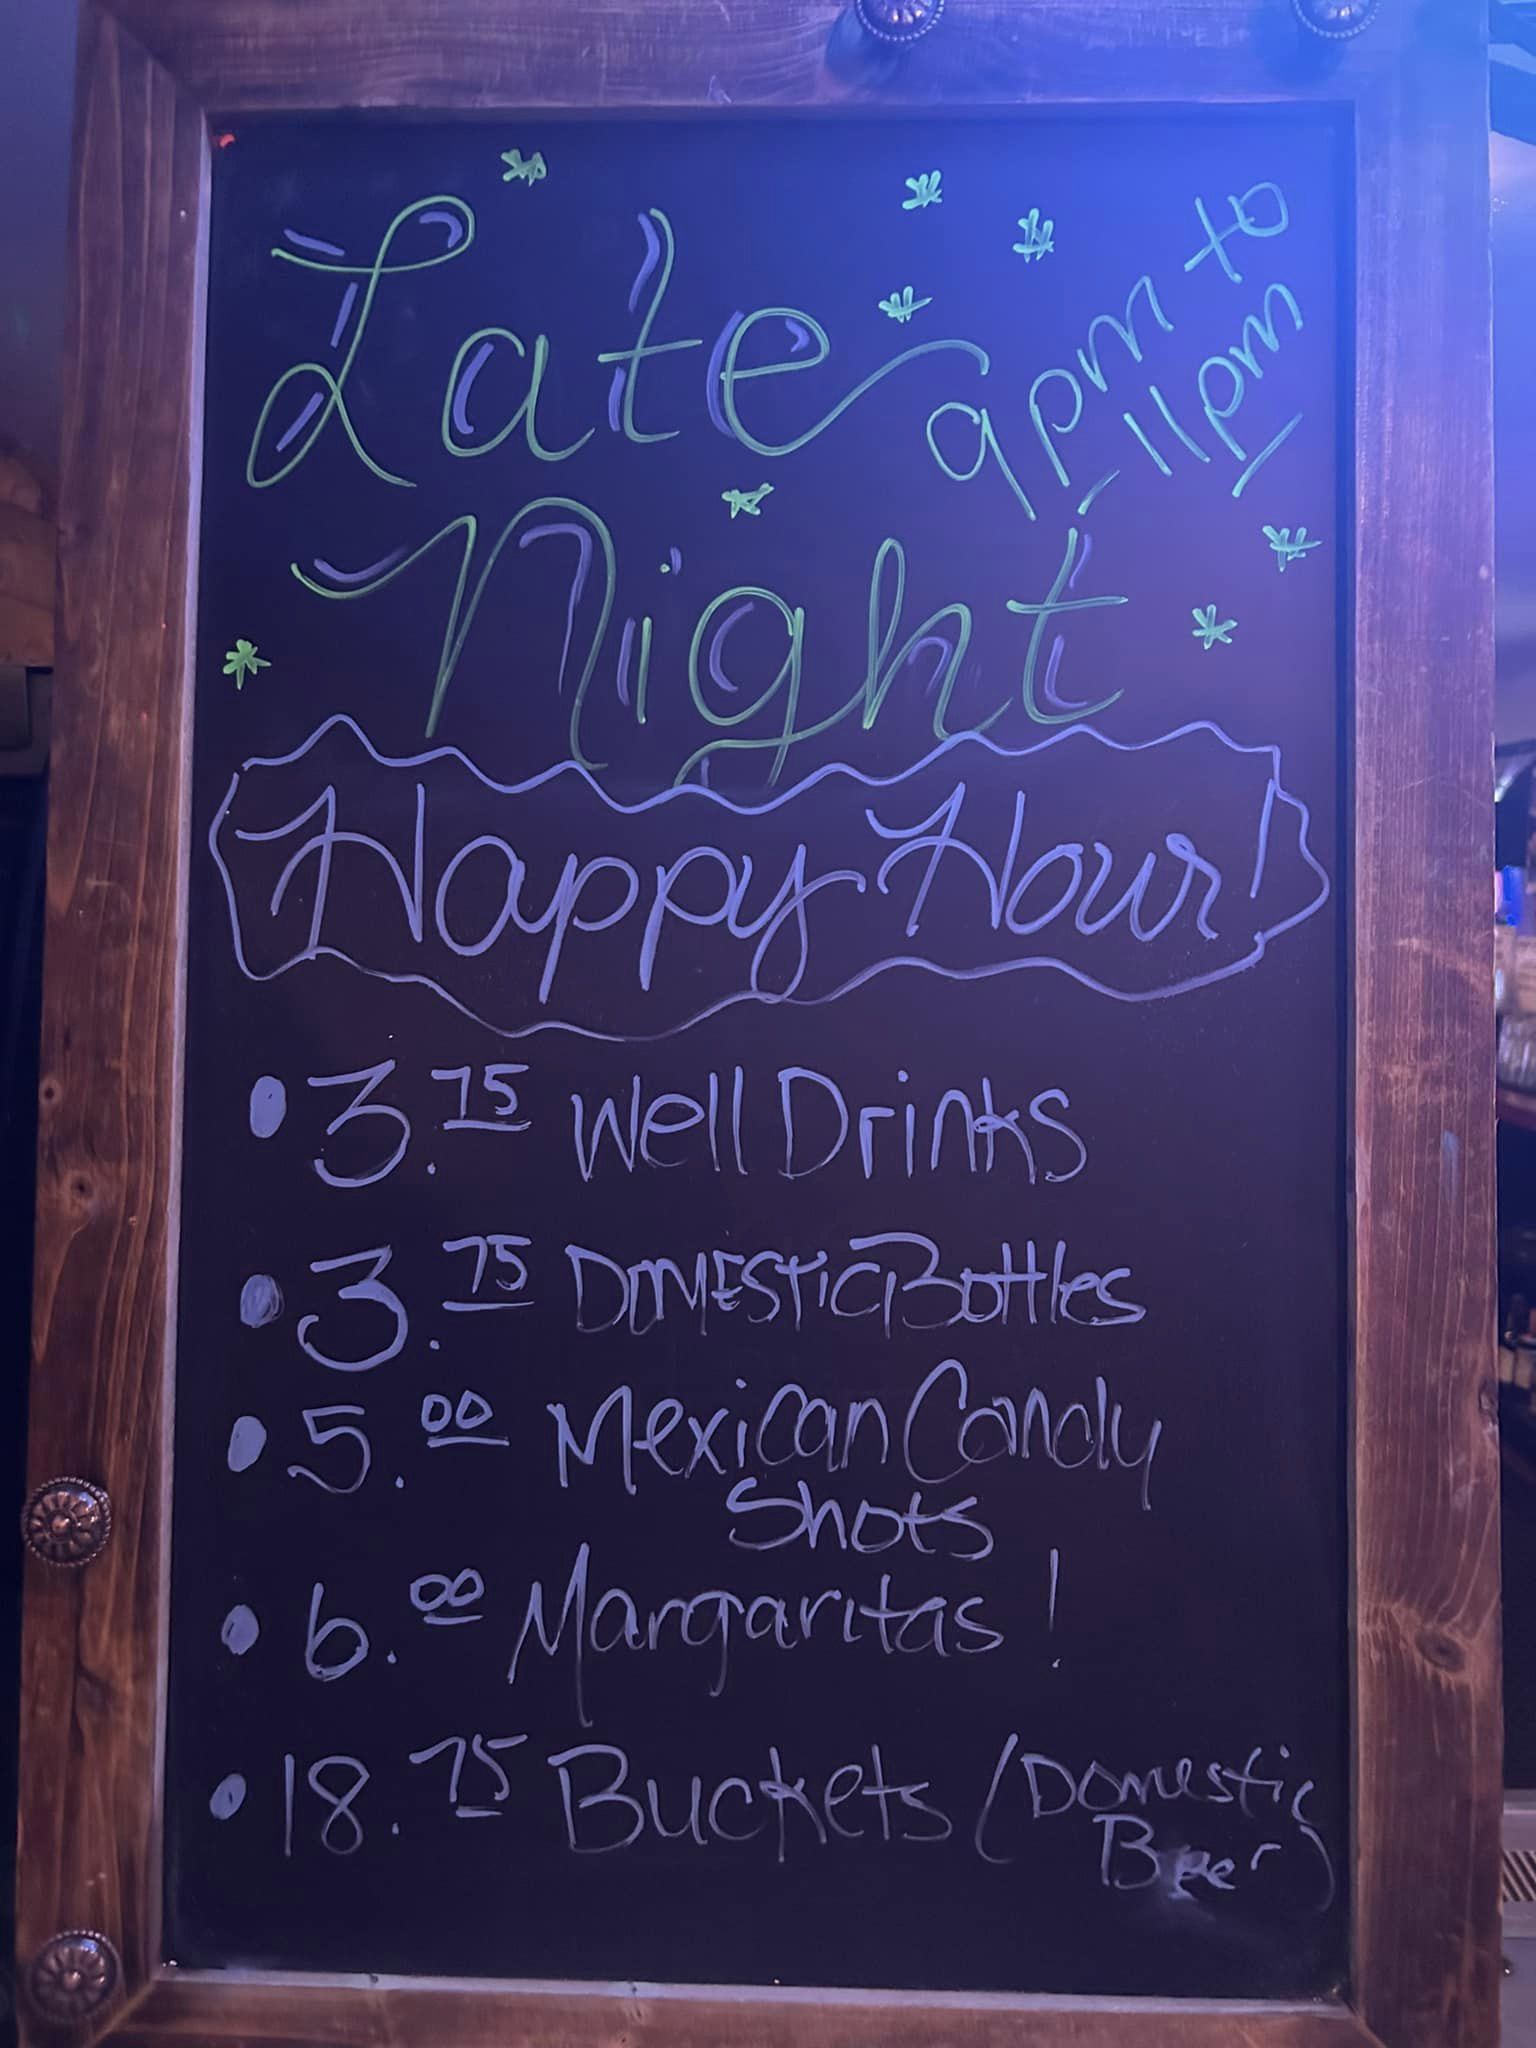 Late
9pm to
11pm
Night
Happy Hour!
• 3.75 Well Drinks
• 3.75 Domestic Bottles
• 5.00 Mexican Candy
Shots
• 6.00 Margaritas!
• 18.75 Buckets (Domestic
Beer)